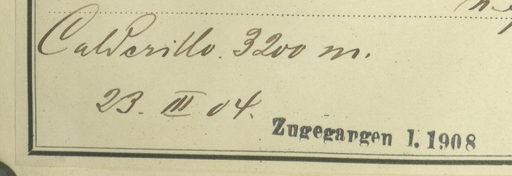 Calderillo. 3200 m.
23. III 04.
Zugegangen 1. 1908